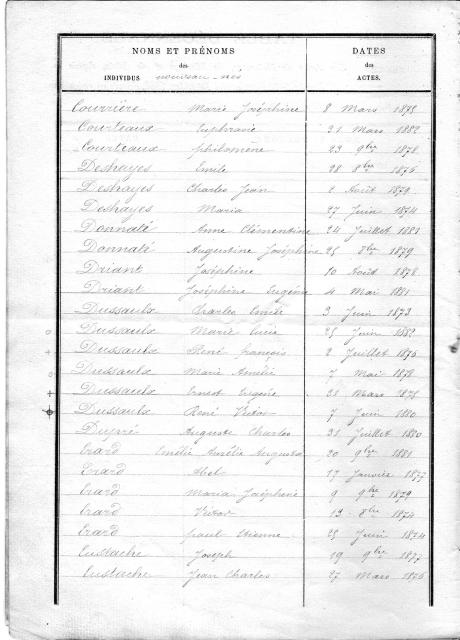 NOMS ET PRÉNOMS DATES
des des
INDIVIDUS nouveau-nés ACTES.
Courrière Marie Joséphine 8 Mars 1875
Courteaux Euphrasie 21 Mars 1882
Courteaux philomène 23 9bre 1878
Deshayes Emile 28 8bre 1875
Deshayes Charles Jean 2 Août 1879
Deshayes Maria 27 Juin 1874
Donnaté Anne Clémentine 24 Juillet 1881
Donnaté Augustine Joséphine 25 8bre 1879
Driant Joséphine 10 Août 1878
Driant Joséphine Eugénie 4 Mai 1881
Dussaulx Charles Emile 3 Juin 1873
Dussaulx Marie 25 Juin 1882
Dussaulx René françois 2 Juillet 1875
Dussaulx Marie Amélie 7 Mai 1878
Dussaulx Ernest Eugène 31 Mars 1875
Dussaulx René Victor 7 Juin 1880
Dupré Auguste Charles 31 Juillet 1880
Erard Emélie Amélie Augusta 20 9bre 1881
Erard Abel 17 Janvier 1877
Erard Maria Joséphine 9 9bre 1879
Erard Victor 13 8bre 1874
Erard paul Etienne 25 Juin 1874
Eustache Joseph 19 9bre 1877
Eustache Jean Charles 27 Mars 1875